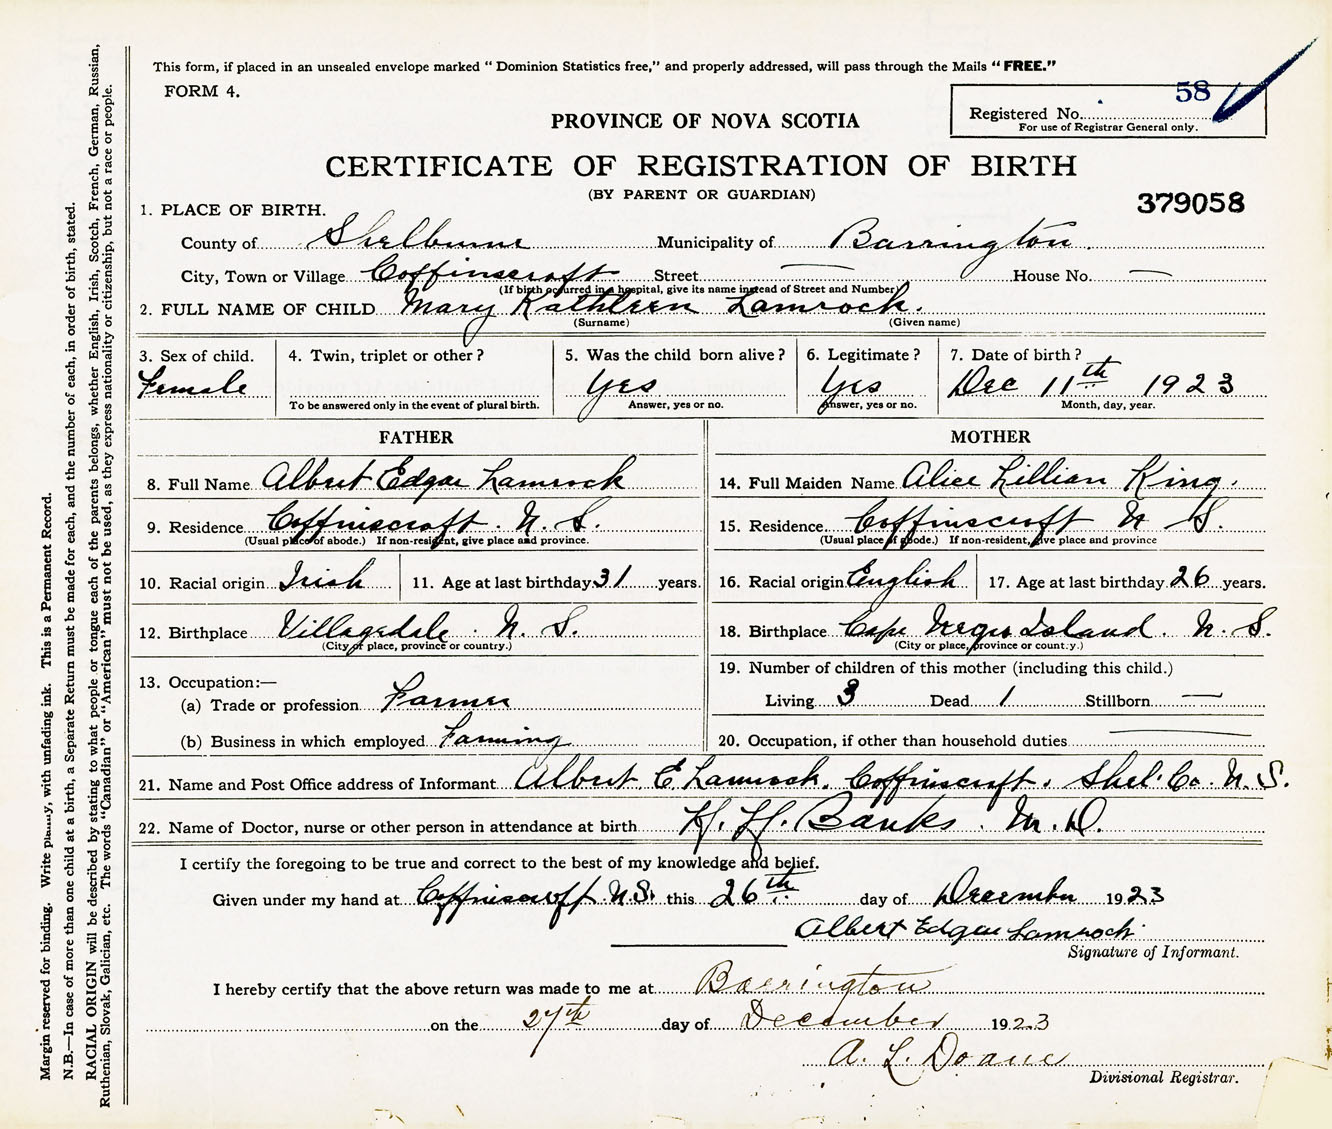 This form, if placed in an unsealed envelope marked “Dominion Statistics free,” and properly addressed, will pass through the Mails “FREE.”
FORM 4.
58
Registered No.
For use of Registrar General only.
PROVINCE OF NOVA SCOTIA
CERTIFICATE OF REGISTRATION OF BIRTH
(BY PARENT OR GUARDIAN)
379058
1. PLACE OF BIRTH.
County of Shelburne Municipality of Barrington
City, Town or Village Coffinscroft Street — House No. —
(If birth occurred in a hospital, give its name instead of Street and Number)
2. FULL NAME OF CHILD Mary Kathleen Lamrock.
(Surname) (Given name)
3. Sex of child. 4. Twin, triplet or other? 5. Was the child born alive? 6. Legitimate? 7. Date of birth?
Female Yes Yes Dec 11th 1923
To be answered only in the event of plural birth. Answer, yes or no. Answer, yes or no. Month, day, year.
FATHER MOTHER
8. Full Name Albert Edgar Lamrock 14. Full Maiden Name Alice Lillian King.
9. Residence Coffinscroft. N. S. 15. Residence. Coffinscroft N S.
(Usual place of abode.) If non-resident, give place and province. (Usual place of abode.) If non-resident, give place and province
10. Racial origin Irish 11. Age at last birthday 31 years. 16. Racial origin English 17. Age at last birthday 26 years.
12. Birthplace Villagedale. N. S. 18. Birthplace Cape Negro Island. N. S.
(City or place, province or country.) (City or place, province or country.)
19. Number of children of this mother (including this child.)
13. Occupation:—
(a) Trade or profession Farmer Living 3 Dead 1 Stillborn —
(b) Business in which employed Farming 20. Occupation, if other than household duties —
21. Name and Post Office address of Informant Albert. E Lamrock. Coffinscroft. Shel. Co. N. S.
22. Name of Doctor, nurse or other person in attendance at birth H. H. Banks. M. D.
I certify the foregoing to be true and correct to the best of my knowledge and belief.
Given under my hand at Coffinscroft. N.S. this 26th day of December 1923
Albert Edgar Lamrock
Signature of Informant.
I hereby certify that the above return was made to me at Barrington
on the 27th day of December 1923
A. L. Doane
Divisional Registrar.
Margin reserved for binding. Write plainly, with unfading ink. This is a Permanent Record.
N.B.—In case of more than one child at a birth, a Separate Return must be made for each, and the number of each, in order of birth, stated.
RACIAL ORIGIN will be described by stating to what people or tongue each of the parents belongs, whether English, Irish, Scotch, French, German, Russian,
Ruthenian, Slovak, Galician, etc. The words “Canadian” or “American” must not be used, as they express nationality or citizenship, but not a race or people.